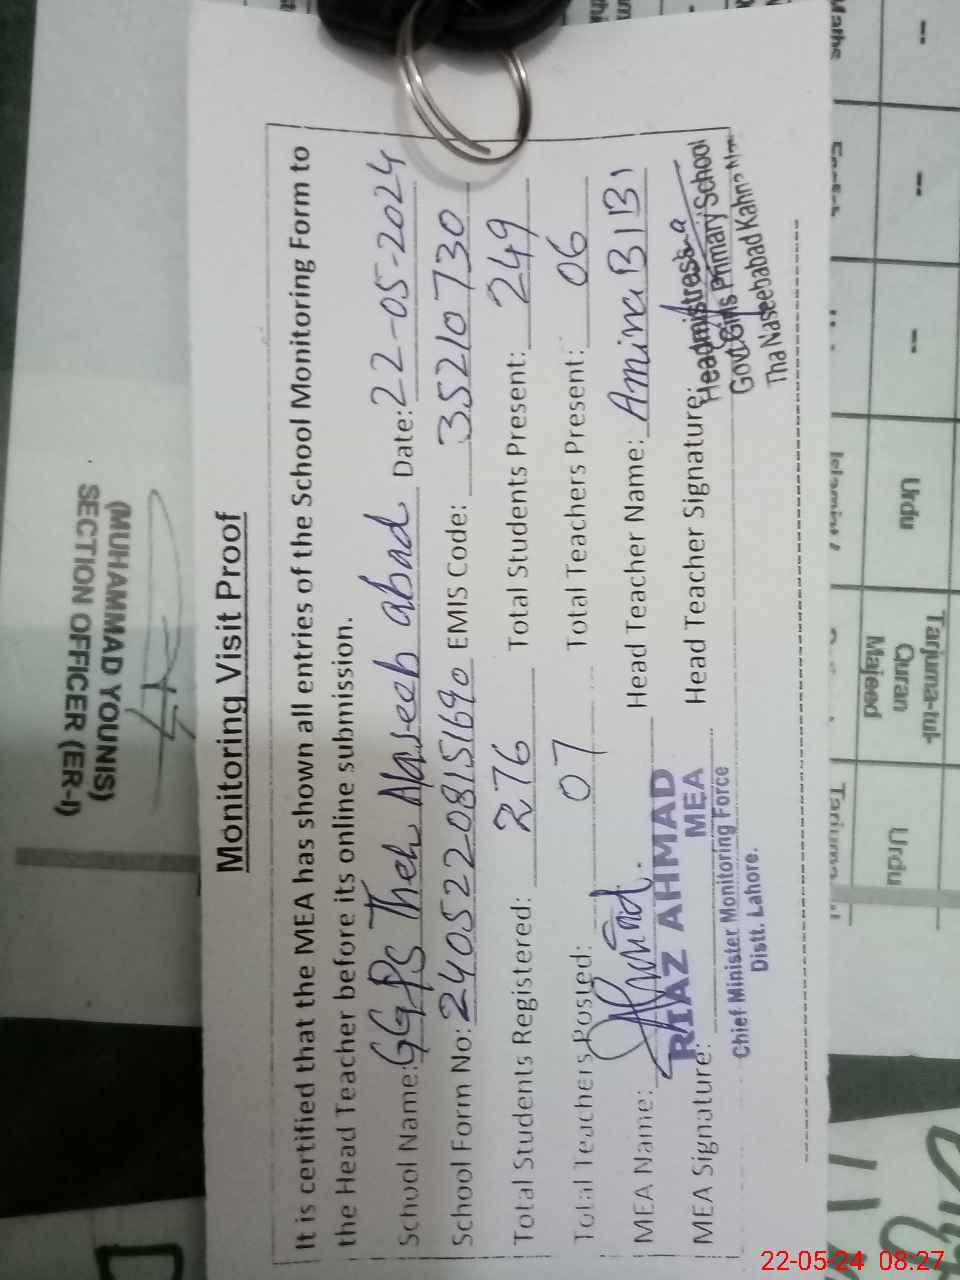 Monitoring Visit Proof
It is certified that the MEA has shown all entries of the School Monitoring Form to
the Head Teacher before its online submission.
School Name: GGPS Theh Naseeb abad Date: 22-05-2024
School Form No: 24052208151690 EMIS Code: 35210730
Total Students Registered: 276 Total Students Present: 249
Total Teachers Posted: 07 Total Teachers Present: 06
MEA Name: Head Teacher Name: Amina BIBI
RIAZ AHMAD
MEA
MEA Signature: Head Teacher Signature:
Chief Minister Monitoring Force
Distt. Lahore.
Headmistress
Govt. Girls Primary School
Tha Naseebabad Kahna
(MUHAMMAD YOUNIS)
SECTION OFFICER (ER-I)
Maths
Urdu
Tarjuma-tul-
Quran
Majeed
Urdu
22-05-24 08:27